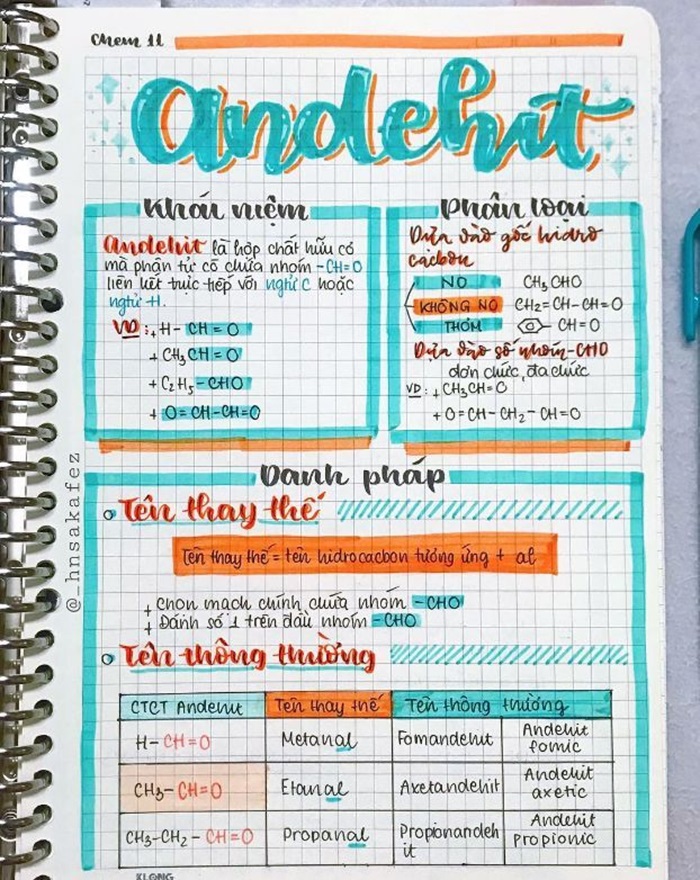 Chem 11
Andehit
Khái niệm
Andehit là hợp chất hữu cơ
mà phân tử có chứa nhóm -CH=O
liên kết trực tiếp với ngtử C hoặc
ngtử H.
VD: + H- CH = O
+ CH₃ CH = O
+ C₂H₅ - CHO
+ O = CH - CH = O
Phân loại
Dựa vào gốc hidro
cacbon
NO CH₃ CHO
KHÔNG NO CH₂ = CH - CH = O
THƠM CH = O
Dựa vào số nhóm -CHO
đơn chức, đa chức
VD: + CH₃CH = O
+ O = CH - CH₂ - CH = O
Danh pháp
Tên thay thế
Tên thay thế = tên hidrocacbon tương ứng + al
+ Chọn mạch chính chứa nhóm -CHO
+ Đánh số 1 trên đầu nhóm -CHO
Tên thông thường
CTCT Andehit Tên thay thế Tên thông thường
H- CH=O Metanal Fomandehit Andehit
fomic
CH₃- CH=O Etanal Axetandehit Andehit
axetic
CH₃-CH₂ - CH=O Propanal Propionandeh Andehit
it propionic
KLONG
@_hnsakafez